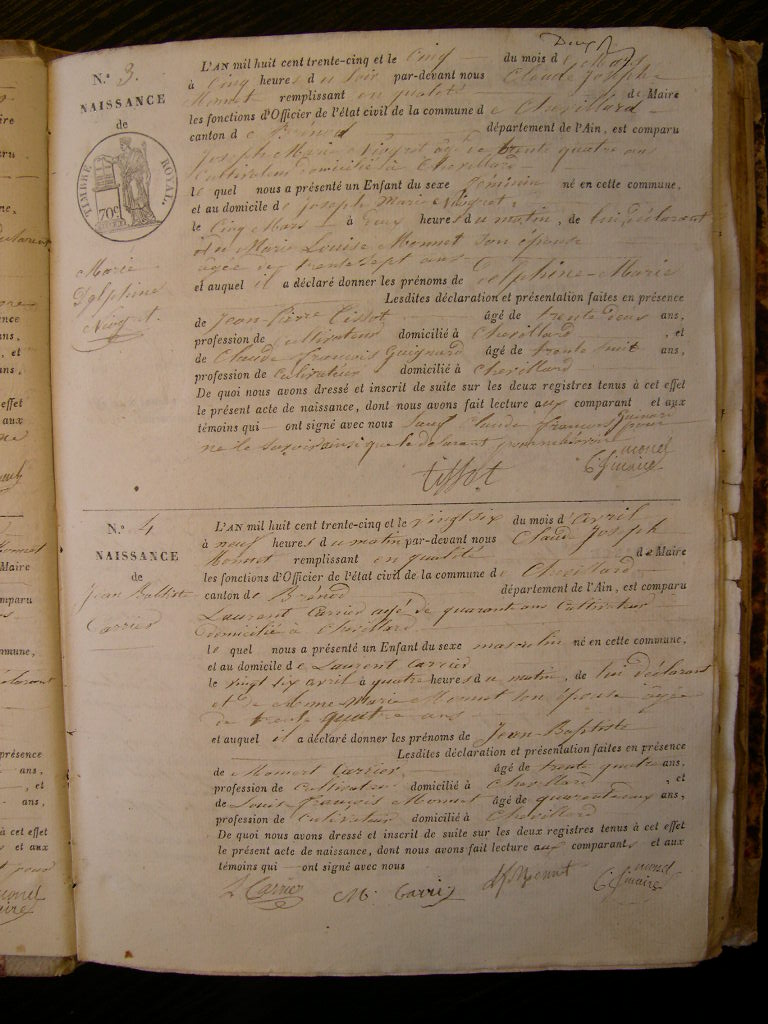 N.º 3.
NAISSANCE
de
TIMBRE ROYAL.
70c
Marie
Delphine
L'AN mil huit cent trente-cinq et le cinq du mois de Mars
à cinq heures du soir par-devant nous Claude Joseph
Monnet remplissant en qualité de Maire
les fonctions d'Officier de l'état civil de la commune de Chevillard
canton de Brénod département de l'Ain, est comparu
Joseph Marie âgé de trente quatre ans
cultivateur domicilié à Chevillard
le quel nous a présenté un Enfant du sexe féminin né en cette commune,
et au domicile de Joseph Marie
le cinq Mars à deux heures du matin, de lui déclarant
et de Marie Louise Monnet son épouse
agée de trente sept ans
et auquel il a déclaré donner les prénoms de Delphine-Marie
Lesdites déclaration et présentation faites en présence
de Jean-Pierre Tissot âgé de trente deux ans,
profession de cultivateur domicilié à Chevillard, et
de Claude François Guignard âgé de trente huit ans,
profession de cultivateur domicilié à Chevillard
De quoi nous avons dressé et inscrit de suite sur les deux registres tenus à cet effet
le présent acte de naissance, dont nous avons fait lecture aux comparant et aux
témoins qui ont signé avec nous sauf Claude François
ne le savoir ainsi que le déclarant
Tissot
N.º 4
NAISSANCE
de
Jean Baptiste
Carrier
L'AN mil huit cent trente-cinq et le vingt six du mois d'avril
à neuf heures du matin par-devant nous Claude Joseph
Monnet remplissant en qualité de Maire
les fonctions d'Officier de l'état civil de la commune de Chevillard
canton de Brénod département de l'Ain, est comparu
Laurent Carrier agé de quarante ans cultivateur
domicilié à Chevillard
le quel nous a présenté un Enfant du sexe masculin né en cette commune,
et au domicile de Laurent Carrier
le vingt six avril à quatre heures du matin, de lui déclarant
et de Marie Monnet son épouse agée
de trente quatre ans
et auquel il a déclaré donner les prénoms de Jean-Baptiste
Lesdites déclaration et présentation faites en présence
de Carrier âgé de trente quatre ans,
profession de cultivateur domicilié à Chevillard, et
de Louis François Monnet âgé de quarante ans,
profession de cultivateur domicilié à Chevillard
De quoi nous avons dressé et inscrit de suite sur les deux registres tenus à cet effet
le présent acte de naissance, dont nous avons fait lecture aux comparants et aux
témoins qui ont signé avec nous
L Carrier